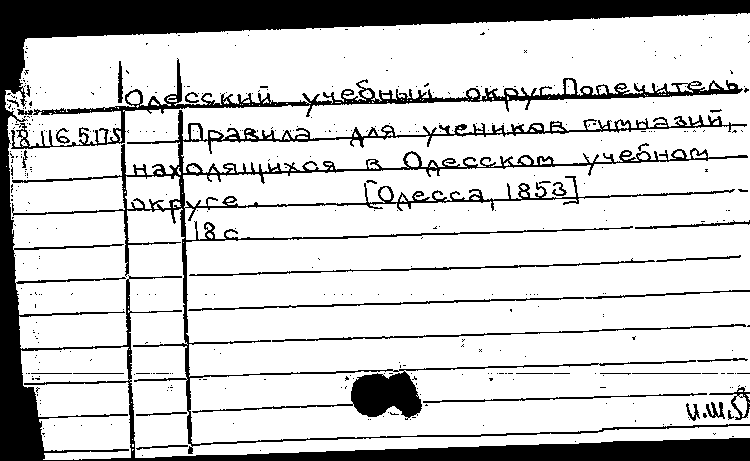 Одесский учебный округ. Попечитель.
18.116.5.175 Правила для учеников гимназий,
находящихся в Одесском учебном
округе. [Одесса, 1853]
18 с